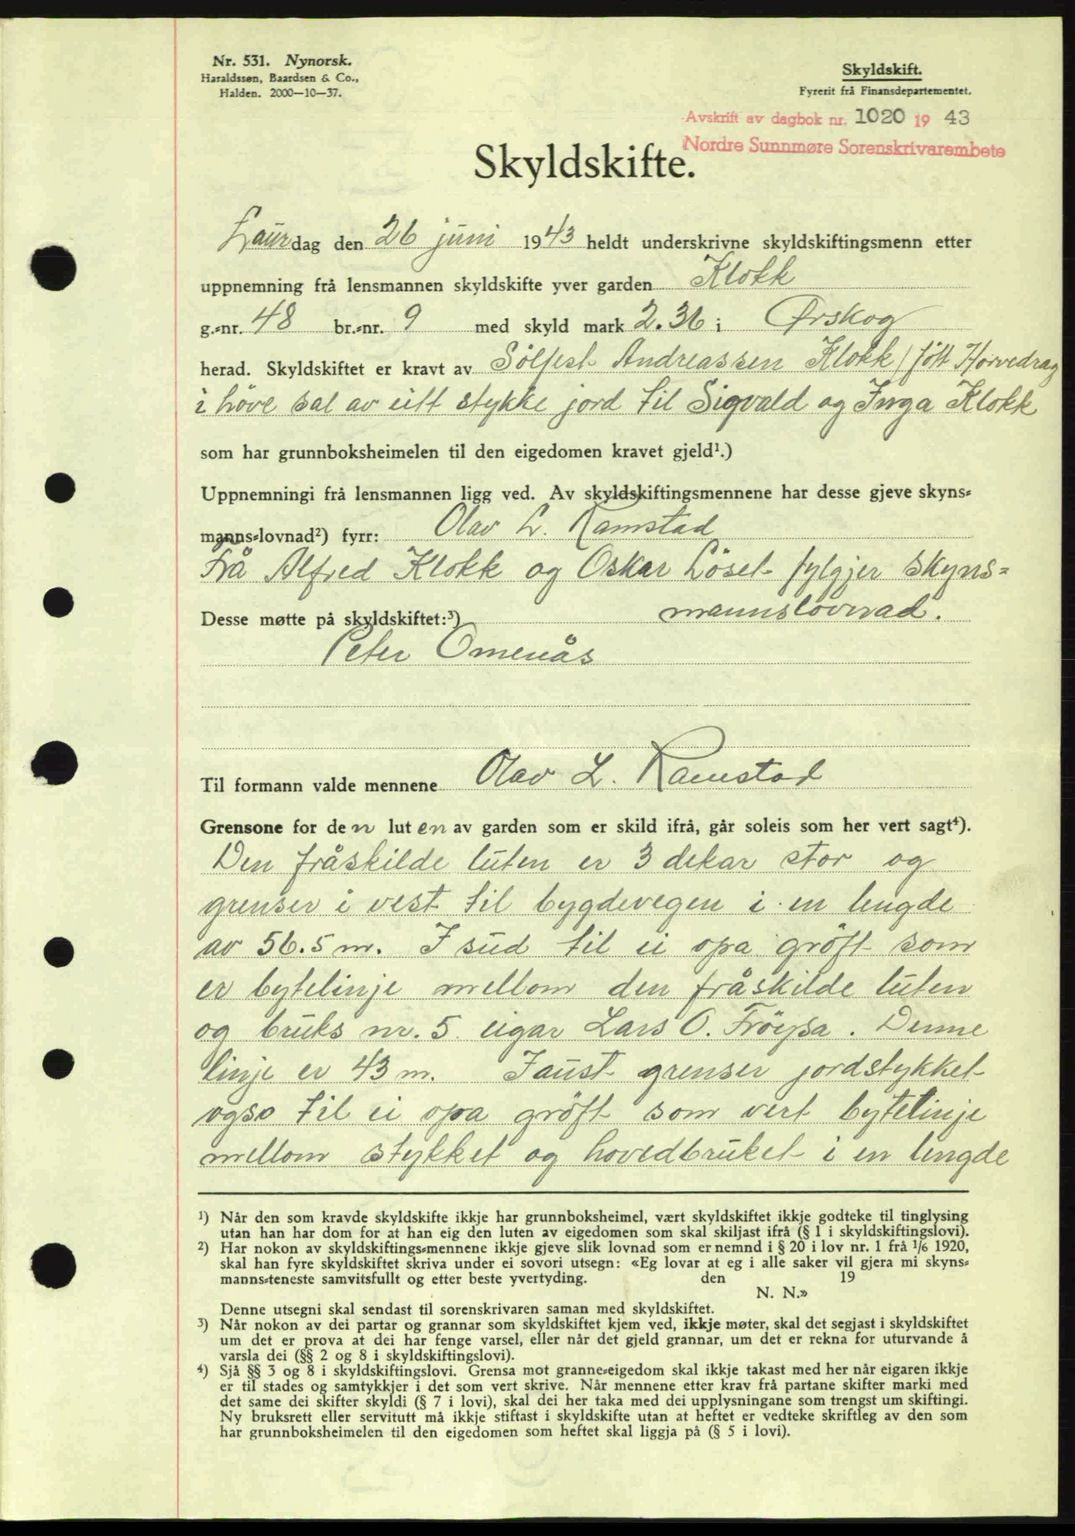 Nr. 531. Nynorsk.
Haraldssøn, Baardsen & Co.,
Halden. 2000—10—37.
Skyldskift.
Fyrerit frå Finansdepartementet.
Avskrift av dagbok nr. 1020 19 43
Nordre Sunnmøre Sorenskrivarembete
Skyldskifte.
Laurdag den 26 juni 1943 heldt underskrivne skyldskiftingsmenn etter
uppnemning frå lensmannen skyldskifte yver garden Klokk
g.-nr. 48 br.-nr. 9 med skyld mark 2.36 i Ørskog
herad. Skyldskiftet er kravt av Sölfest Andreassen Klokk / født
i höve sal av eitt stykke jord til Sigvald og Inga Klokk
som har grunnboksheimelen til den eigedomen kravet gjeld¹.)
Uppnemningi frå lensmannen ligg ved. Av skyldskiftingsmennene har desse gjeve skyns-
manns-lovnad²) fyrr: Olav L. Ramstad
Frå Alfred Klokk og Oskar Löset fylgjer skyns-
mannslovnad.
Desse møtte på skyldskiftet:³)
Peter Omenås
Til formann valde mennene Olav L. Ramstad
Grensone for den luten av garden som er skild ifrå, går soleis som her vert sagt⁴).
Den fråskilde luten er 3 dekar stor og
grenser i vest til bygdevegen i en lengde
av 56.5 m. I sud til ei opa gröft som
er bytelinje mellom den fråskilde luten
og bruks nr. 5 eigar Lars O. Fröysa. Denne
linje er 43 m. I aust grenser jordstykket
ogso til ei opa gröft som vert bytelinje
mellom stykket og hovedbruket i en lengde
¹) Når den som kravde skyldskifte ikkje har grunnboksheimel, vært skyldskiftet ikkje godteke til tinglysing
utan han har dom for at han eig den luten av eigedomen som skal skiljast ifrå (§ 1 i skyldskiftingslovi).
²) Har nokon av skyldskiftings-mennene ikkje gjeve slik lovnad som er nemnd i § 20 i lov nr. 1 frå ¹/₆ 1920,
skal han fyre skyldskiftet skriva under ei sovori utsegn: «Eg lovar at eg i alle saker vil gjera mi skyns-
manns-teneste samvitsfullt og etter beste yvertyding. den 19
N. N.»
Denne utsegni skal sendast til sorenskrivaren saman med skyldskiftet.
³) Når nokon av dei partar og grannar som skyldskiftet kjem ved, ikkje møter, skal det segjast i skyldskiftet
um det er prova at dei har fenge varsel, eller når det gjeld grannar, um det er rekna for uturvande å
varsla dei (§§ 2 og 8 i skyldskiftingslovi).
⁴) Sjå §§ 3 og 8 i skyldskiftingslovi. Grensa mot granne-eigedom skal ikkje takast med her når eigaren ikkje
er til stades og samtykkjer i det som vert skrive. Når mennene etter krav frå partane skifter marki med
det same dei skifter skyldi (§ 7 i lovi), skal dei her taka med dei upplysningane som trengst um skiftingi.
Ny bruksrett eller servitutt må ikkje stiftast i skyldskifte utan at heftet er vedteke skriftleg av den som
har grunnboksheimelen til den eigedomen som heftet skal liggja på (§ 5 i lovi).